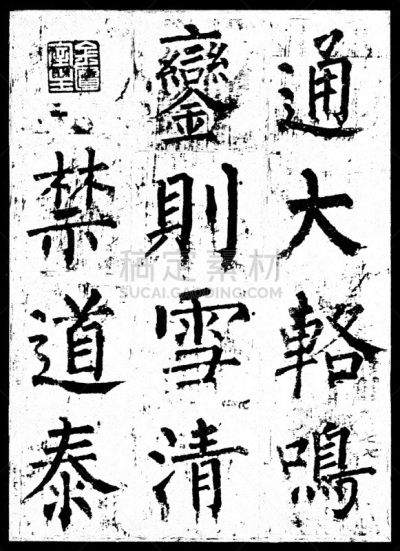 通大輅鳴
鑾則雪清
禁道泰
稿定素材
SUCAI.GAODING.COM